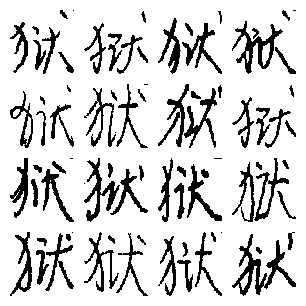 狱狱狱狱
狱狱狱狱
狱狱狱狱
狱狱狱狱